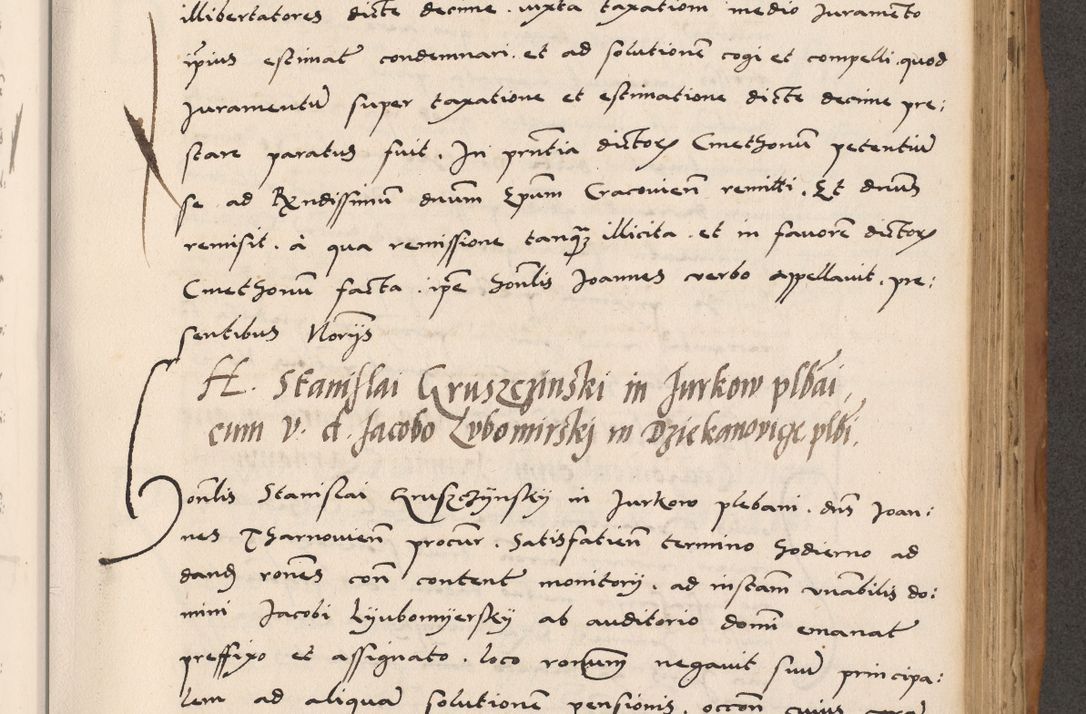 illibertatores dicte decime . iuxta taxationem medio Juramento
ip̃ius estimat̃ condemnari . et ad solutionẽ cogi et compelli . quod
Juramentũ super taxatione et estimatione dicte decime pre:
stare paratus fuit . In pñtia dictoꝝ Cmethonũ petentiũ
se ad Rx̃ndissimũ dnũm Ep̃um Cracovieñ remitti . Et dnũs
remisit . à qua remissione tanq̃ꝫ illicita . et in favorẽ dictoꝝ
Cmethonũ facta . ip̃e hoñlis Joannes verbo appellavit . pre:
sentibus Norijs
H. Stanislai Gruszczinski in Jurkow plbãi,
cum v. d. Jacobo Lvbomirskj in Dziekanovicze plbi.
Hoñlis Stanislai Gruszczÿnskÿ in Jurkow plebani . dñs Joan:
nes Tharnovieñ procur̃ . Satisfatieñ termino hodierno ad
dand̃ rõnes coñ content̃ monitorij . ad instam̃ vnãbilis do:
mini Jacobi Lÿubomÿerskÿ ab auditorio domĩ emanat̃
preffixo et assignato . loco roñum negavit suũ principa:
lem ad aliquã solutionẽ pensionis . occoñ cuius